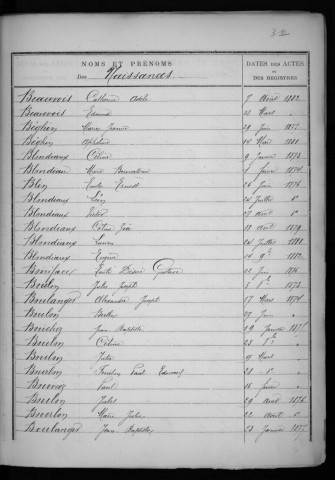 NOMS ET PRÉNOMS
Des Naissances
DATES DES ACTES
OU
DES REGISTRES
Beauvois Catherine Adèle 7 Août 1882
Beauvois Edmond 22 Mars
Béghin Marie Jeanne 29 Juin
Béghin 14 Mai 1880
Blondiaux Céline 9 Janvier 1873
Blondiau Marie 5 Juin 1874
Blin Emile Ernest 26 Juin 1876
Blondiaux Léon 24 Juillet do
Blondiaux Victor 27 Août do
Blondiaux Céline 18 Août 1879
Blondiaux Louis 24 Juillet 1881
Blondiaux Eugène 24 9re 1882
Boniface Emile Désiré Gustave 22 Juin 1876
Boulon Jules Joseph 5 1873
Boulanger Alexandre Joseph 17 Mars 1874
Boulon Berthe 27 Juin
Bouchez Jean Baptiste 29 Janvier 1875
Boulon Céline 28
Boulon Jules 17 Mars
Bourlon Paul Edouard 28 do
Paul 16 Juin
Boulon Jules 29 Août 1876
Bourlon Marie Julie 22 Août do
Boulanger Jean Baptiste 23 Janvier 1877